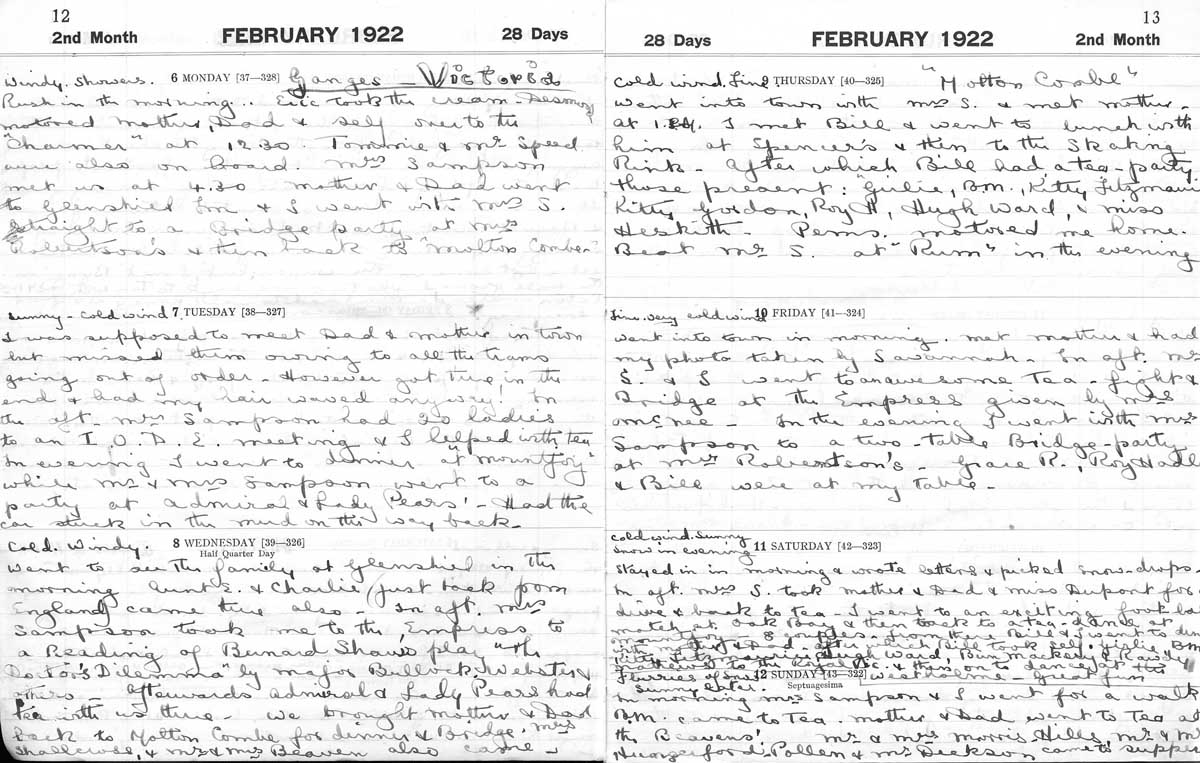 12
2nd Month
FEBRUARY 1922
28 Days
Windy. Showers.
6 MONDAY [37—328]
Ganges - Victoria
Rush in the morning. Eric took the cream. Desmond
motored mother, Dad & self over to the
"Charmer" at 12.30. Tommie & Mr Speed
were also on board. Mrs Sampson
met us at 4.30 mother & Dad went
to Glenshiel Inn & I went with Mrs S.
straight to a Bridge party at Mrs
Robertson's & then back to "Molton Combe"
Sunny - cold wind
7 TUESDAY [38—327]
I was supposed to meet Dad & mother in town
but missed them owing to all the trams
going out of order - However got there, in the
end & had my hair waved anyway! In
the aft. Mrs Sampson had 20 ladies
to an I.O.D.E. meeting & I helped with tea
In evening I went to dinner at "Mountjoy"
while Mr & Mrs Sampson went to a
party at Admiral & Lady Pears' - Had the
car stuck in the mud on the way back -
Cold. Windy.
8 WEDNESDAY [39—326]
Half Quarter Day
Went to see the family at Glenshiel in the
morning Aunt S. & Charlie (just back from
England) came there also - In aft. Mrs
Sampson took me to the Empress to
a Reading of Bernard Shaw's play "The
Doctor's Dilemma" by Major Bullock-Webster &
others. Afterwards Admiral & Lady Pears had
tea with us there - We brought mother & Dad
back to Molton Combe for dinner & Bridge. Mrs
Shallcross, & Mr & Mrs Beaven also came -
13
28 Days
FEBRUARY 1922
2nd Month
Cold wind. Fine
9 THURSDAY [40—325]
"Molton Combe"
Went into town with Mrs S. & met mother.
At 1 I met Bill & went to lunch with
him at Spencer's & then to the Skating
Rink - After which Bill had a tea-party.
Those present: Julie, B.M., Kitty Fitzmaur
Kitty Gordon, Roy H, Hugh Ward, & Miss
Heskith - Pems. motored me home.
Beat Mr S. at "Rum" in the evening
Fine. Very cold wind
10 FRIDAY [41—324]
Went into town in morning. Met mother & had
my photo taken by Savannah - In aft. Mrs
S. & I went to an awesome Tea-fight &
Bridge at the Empress given by Mrs
McNee - In the evening I went with Mrs
Sampson to a two-table Bridge-party
at Mrs Robertson's - Grace R., Roy Hadl
& Bill were at my table -
Cold wind. Sunny
Snow in evening
11 SATURDAY [42—323]
Stayed in in morning & wrote letters & picked snow-drops -
In aft. Mrs S. took mother & Dad & Miss Dupont for
drive & back to tea - I went to an exciting
match at Oak Bay & then back to a tea-dance at
Mountjoy - 8 couples - from there Bill & I went to
with mother & Dad - after which Bill took self, Julie B.M.
Kitty Fitzmaurice, Hugh Ward,
to the Royal Vic. & then on to dance at the
Westholme - Great fun
Flurries of snow
Sunny later.
12 SUNDAY [43—322]
Septuagesima
In morning Mrs Sampson & I went for a walk
B.M. came to tea. Mother & Dad went to tea at
the Beavens' Mr & Mrs Morris Hills, Mr & M
Hungerford-Pollen & Mr Jackson came to supper